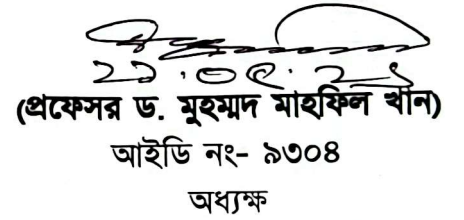 (প্রফেসর ড. মুহম্মদ মাহফিল খাঁন)
আইডি নং- ৯৩০৪
অধ্যক্ষ